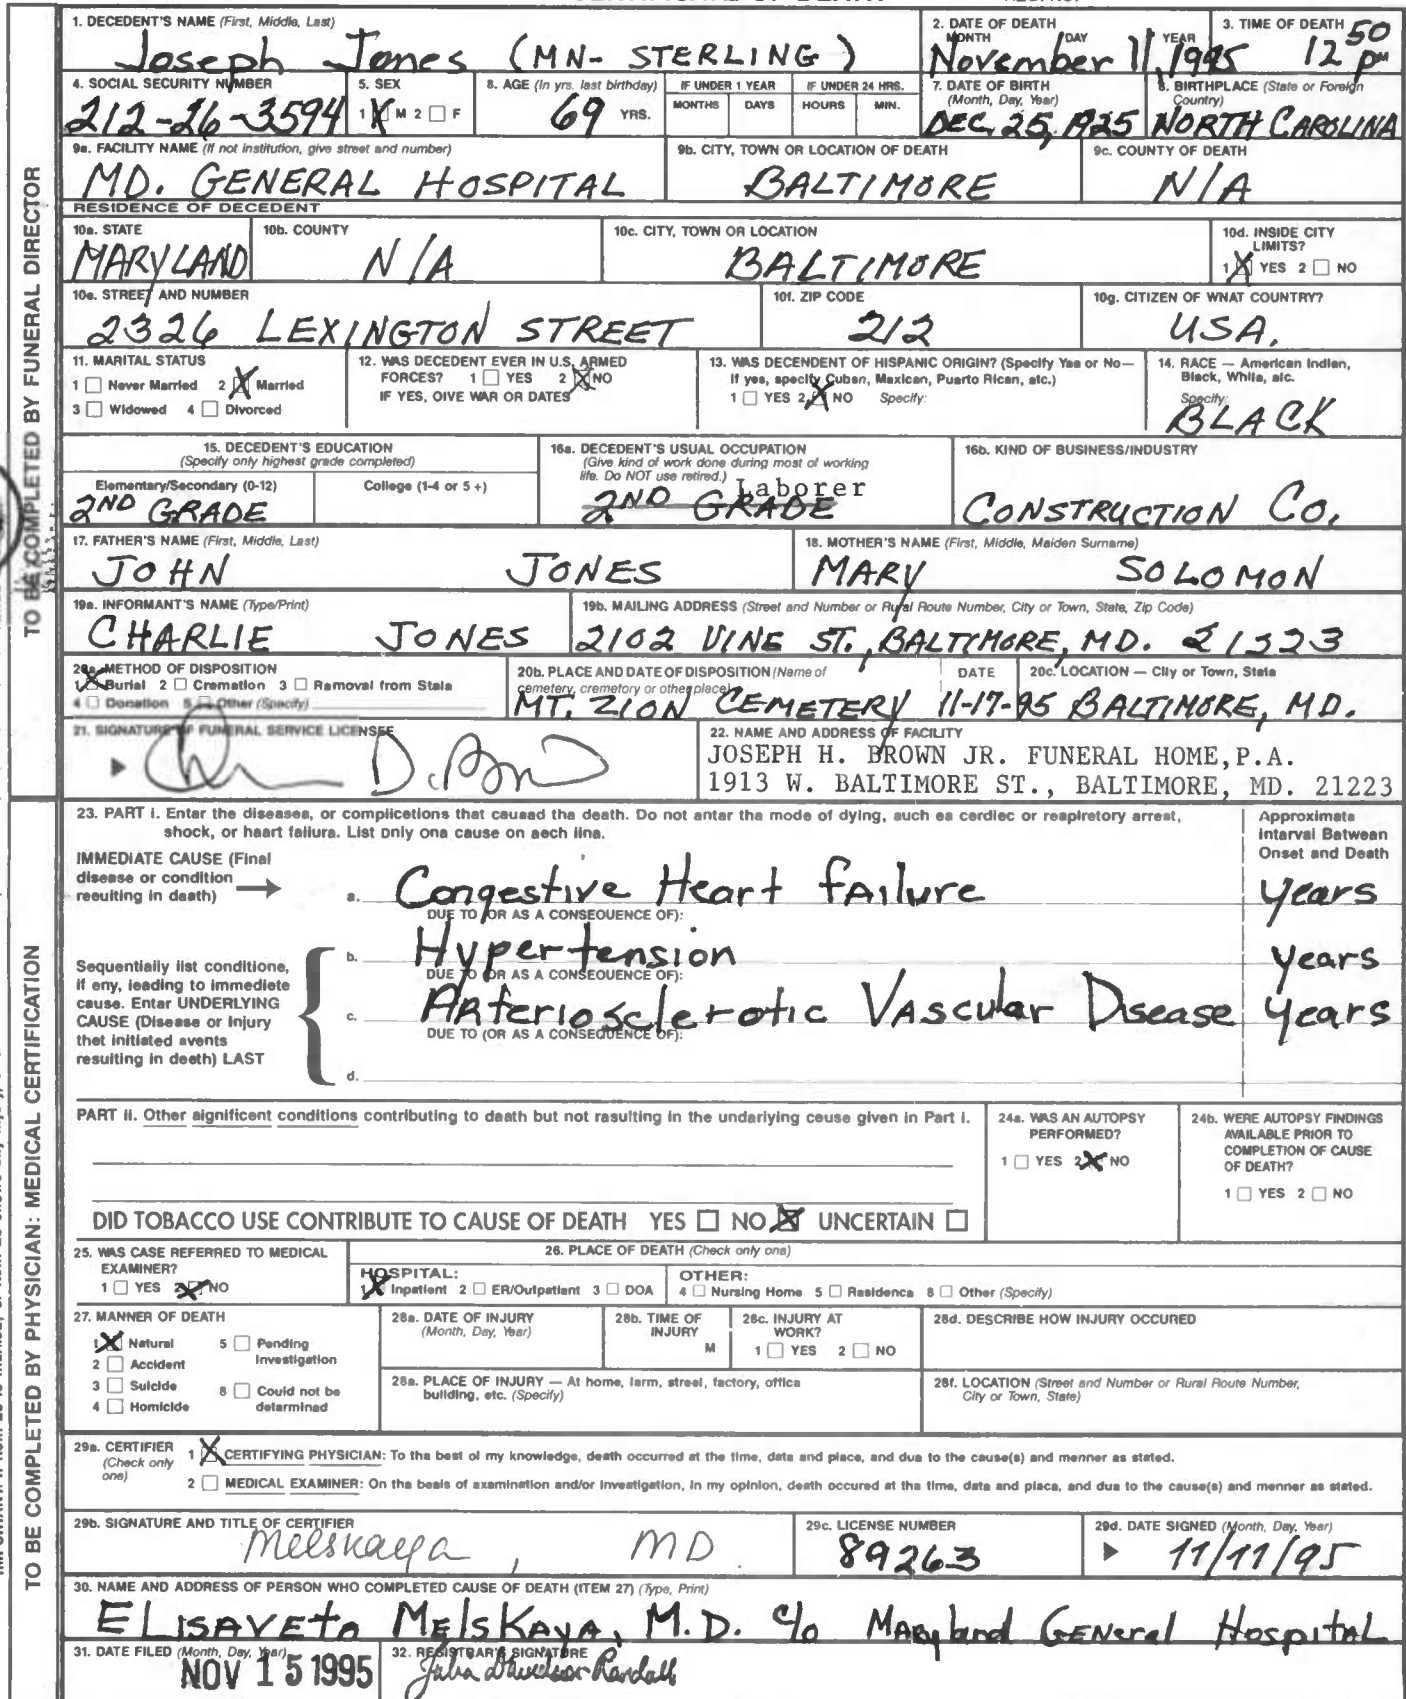 1. DECEDENT'S NAME (First, Middle, Last)
Joseph Jones (MN- STERLING)
2. DATE OF DEATH
MONTH DAY YEAR
November 11, 1995
3. TIME OF DEATH
12 50 pm
4. SOCIAL SECURITY NUMBER
212-26-3594
5. SEX
1 X M 2 □ F
8. AGE (In yrs. last birthday)
69 YRS.
IF UNDER 1 YEAR
MONTHS DAYS
IF UNDER 24 HRS.
HOURS MIN.
7. DATE OF BIRTH
(Month, Day, Year)
DEC. 25, 1925
8. BIRTHPLACE (State or Foreign
Country)
NORTH CAROLINA
9a. FACILITY NAME (If not institution, give street and number)
MD. GENERAL HOSPITAL
9b. CITY, TOWN OR LOCATION OF DEATH
BALTIMORE
9c. COUNTY OF DEATH
N/A
RESIDENCE OF DECEDENT
10a. STATE
MARYLAND
10b. COUNTY
N/A
10c. CITY, TOWN OR LOCATION
BALTIMORE
10d. INSIDE CITY
LIMITS?
1 X YES 2 □ NO
10e. STREET AND NUMBER
2326 LEXINGTON STREET
10f. ZIP CODE
212
10g. CITIZEN OF WNAT COUNTRY?
USA.
11. MARITAL STATUS
1 □ Never Married 2 X Married
3 □ Widowed 4 □ Divorced
12. WAS DECEDENT EVER IN U.S. ARMED
FORCES? 1 □ YES 2 X NO
IF YES, OIVE WAR OR DATES
13. WAS DECENDENT OF HISPANIC ORIGIN? (Specify Yaa or No—
If yes, specify Cuban, Maxican, Puarto Rican, atc.)
1 □ YES 2 X NO Specify:
14. RACE — American Indian,
Black, Whita, alc.
Specify:
BLACK
15. DECEDENT'S EDUCATION
(Specify only highest grade completed)
Elementary/Secondary (0-12)
2ND GRADE
College (1-4 or 5+)
16a. DECEDENT'S USUAL OCCUPATION
(Give kind of work done during most of working
life. Do NOT use retired.)
Laborer
2ND GRADE
16b. KIND OF BUSINESS/INDUSTRY
CONSTRUCTION CO.
17. FATHER'S NAME (First, Middle, Last)
JOHN JONES
18. MOTHER'S NAME (First, Middle, Maiden Surname)
MARY SOLOMON
19a. INFORMANT'S NAME (Type/Print)
CHARLIE JONES
19b. MAILING ADDRESS (Street and Number or Rural Route Number, City or Town, State, Zip Code)
2102 VINE ST., BALTIMORE, MD. 21223
20a. METHOD OF DISPOSITION
1 X Burial 2 □ Cremation 3 □ Ramoval from Stala
4 □ Donation 5 □ Other (Specify)
20b. PLACE AND DATE OF DISPOSITION (Name of
cemetery, crematory or other place)
MT. ZION CEMETERY
DATE
11-17-95
20c. LOCATION — City or Town, Stata
BALTIMORE, MD.
21. SIGNATURE OF FUNERAL SERVICE LICENSEE
22. NAME AND ADDRESS OF FACILITY
JOSEPH H. BROWN JR. FUNERAL HOME,P.A.
1913 W. BALTIMORE ST., BALTIMORE, MD. 21223
TO BE COMPLETED BY FUNERAL DIRECTOR
23. PART i. Enter the diseasea, or complicetions that causad tha death. Do not antar tha mode of dying, auch ea cerdiec or reapiretory arreat,
shock, or haart failura. List only ona cause on aech lina.
Approximata
Intarval Batwean
Onset and Death
IMMEDIATE CAUSE (Final
disease or condition
reeulting in daath)
a. Congestive Heart fAilure years
DUE TO (OR AS A CONSEOUENCE OF):
b. Hypertension years
DUE TO (OR AS A CONSEQUENCE OF):
Sequentially list conditione,
if eny, leading to immediete
cause. Enter UNDERLYING
CAUSE (Disease or Injury
thet initiated avents
resulting in deeth) LAST
c. ARteriosclerotic VAscular Disease years
DUE TO (OR AS A CONSEQUENCE OF):
d.
PART ii. Other aignificent conditions contributing to daath but not rasulting in the undarlying ceuse given in Part i.
24a. WAS AN AUTOPSY
PERFORMED?
1 □ YES 2 X NO
24b. WERE AUTOPSY FINDINGS
AVAILABLE PRIOR TO
COMPLETION OF CAUSE
OF DEATH?
1 □ YES 2 □ NO
DID TOBACCO USE CONTRIBUTE TO CAUSE OF DEATH YES □ NO X UNCERTAIN □
25. WAS CASE REFERRED TO MEDICAL
EXAMINER?
1 □ YES 2 X NO
26. PLACE OF DEATH (Check only ona)
HOSPITAL:
1 X Inpatient 2 □ ER/Outpatient 3 □ DOA
OTHER:
4 □ Nursing Home 5 □ Rasidenca 8 □ Other (Specify)
27. MANNER OF DEATH
1 X Natural
2 □ Accident
3 □ Suicide
4 □ Homicide
5 □ Pending
Investigation
8 □ Could not be
determinad
28a. DATE OF INJURY
(Month, Day, Year)
28b. TIME OF
INJURY
M
28c. INJURY AT
WORK?
1 □ YES 2 □ NO
28d. DESCRIBE HOW INJURY OCCURED
28a. PLACE OF INJURY — At home, larm, streel, factory, office
building, etc. (Specify)
28f. LOCATION (Street and Number or Rural Route Number,
City or Town, State)
29a. CERTIFIER
(Check only
one)
1 X CERTIFYING PHYSICIAN: To tha best ol my knowledge, death occurred at the time, data and place, and dua to the cause(s) and menner as stated.
2 □ MEDICAL EXAMINER: On tha beels of axamination and/or Investigation, in my opinion, death occured at tha time, data and placa, and dua to the cause(s) and menner as stated.
29b. SIGNATURE AND TITLE OF CERTIFIER
Melskaya, MD.
29c. LICENSE NUMBER
89263
29d. DATE SIGNED (Month, Day, Year)
11/11/95
30. NAME AND ADDRESS OF PERSON WHO COMPLETED CAUSE OF DEATH (ITEM 27) (Type, Print)
ELISAVEta MElsKAYA, M.D. c/o MARyland GENeral HospitAL
31. DATE FILED (Month, Day, Year)
NOV 15 1995
32. REGISTRAR'S SIGNATURE
TO BE COMPLETED BY PHYSICIAN: MEDICAL CERTIFICATION